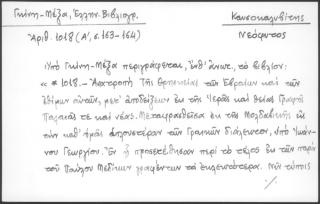 Γκίνη-Μέξα, Ἑλλην. Βιβλιογρ. Καυσοκαλυβίτης
Ἀριθ. 1018 (Α', σ. 163-164) Νεόφυτος
Ὑπὸ Γκίνη-Μέξα περιγράφεται, ὑπ' ἀριθ., τὸ βιβλίον:
« * 1018.- Ἀνατροπὴ τῆς θρησκείας τῶν Ἑβραίων καὶ τῶν
ἐθίμων αὐτῶν, μετ' ἀποδείξεων ἐκ τῆς Ἱερᾶς καὶ θείας Γραφῆς
Παλαιᾶς τε καὶ νέας. Μεταφρασθεῖσα ἐκ τῆς Μολδαβικῆς εἰς
τὴν καθ' ἡμᾶς ἁπλουστέραν τῶν Γραικῶν διάλεκτον, ὑπὸ Ἰωάν-
νου Γεωργίου. Ἐν ᾗ προσετέθησαν περὶ τὸ τέλος ἐκ τῶν παρὰ
τοῦ Παύλου Μεδίκου γραφέντων τὰ ἐκλεκτότερα. Νῦν τύποις
·/.